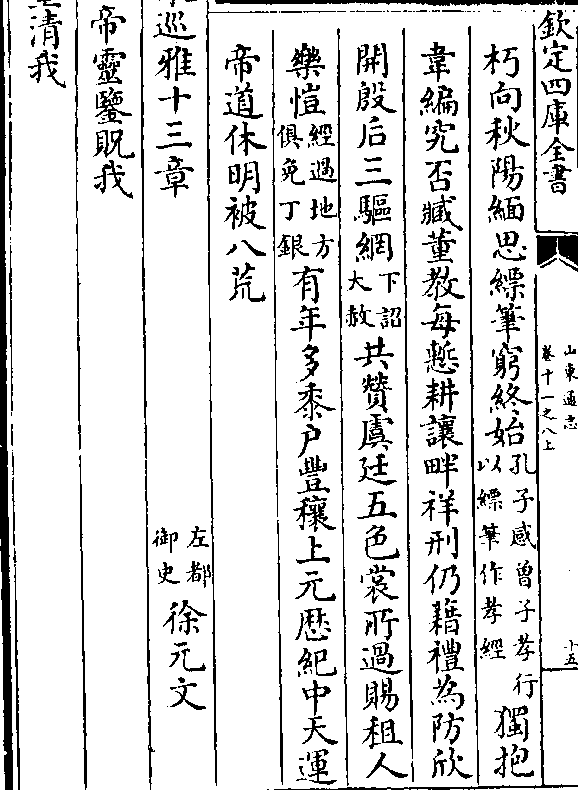 欽定四庫全書
山東通志
卷十一之八上
十五
朽向秋陽緬思縹筆窮終始孔子感曾子孝行以縹筆作孝經獨抱
韋編究否臧董教每慙耕讓畔祥刑仍藉禮為防欣
開殷后三驅網下詔大赦共贊虞廷五色裳所過賜租人
樂愷經過地方俱免丁銀有年多黍户豐穰上元厯紀中天運
帝道休明被八荒
巡雅十三章
左都御史徐元文
帝靈鑒貺我
清我